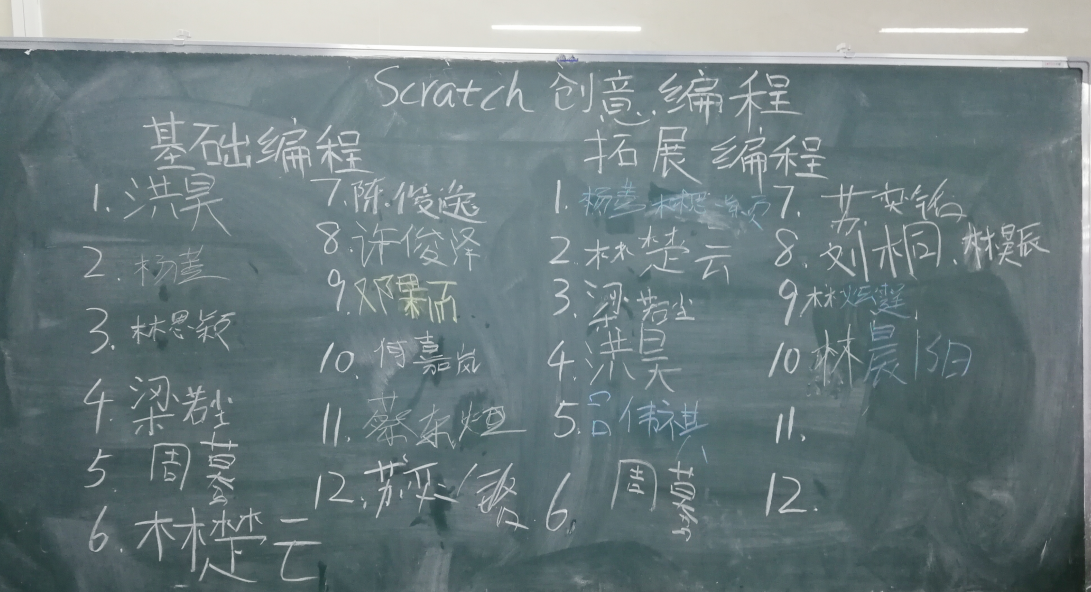 Scratch 创意编程
基础编程
1. 洪昊
2. 杨
3. 林思颖
4. 梁若尘
5. 周慕
6. 林楚云
7. 陈俊逸
8. 许俊泽
9. 邓果
10. 何嘉岚
11. 蔡东烜
12. 苏
拓展编程
1. 杨
2. 林楚云
3. 梁若尘
4. 洪昊
5. 吕伟祺
6. 周慕
7. 苏奕铭
8. 刘桐、林昊辰
9. 林
10 林晨阳
11.
12.